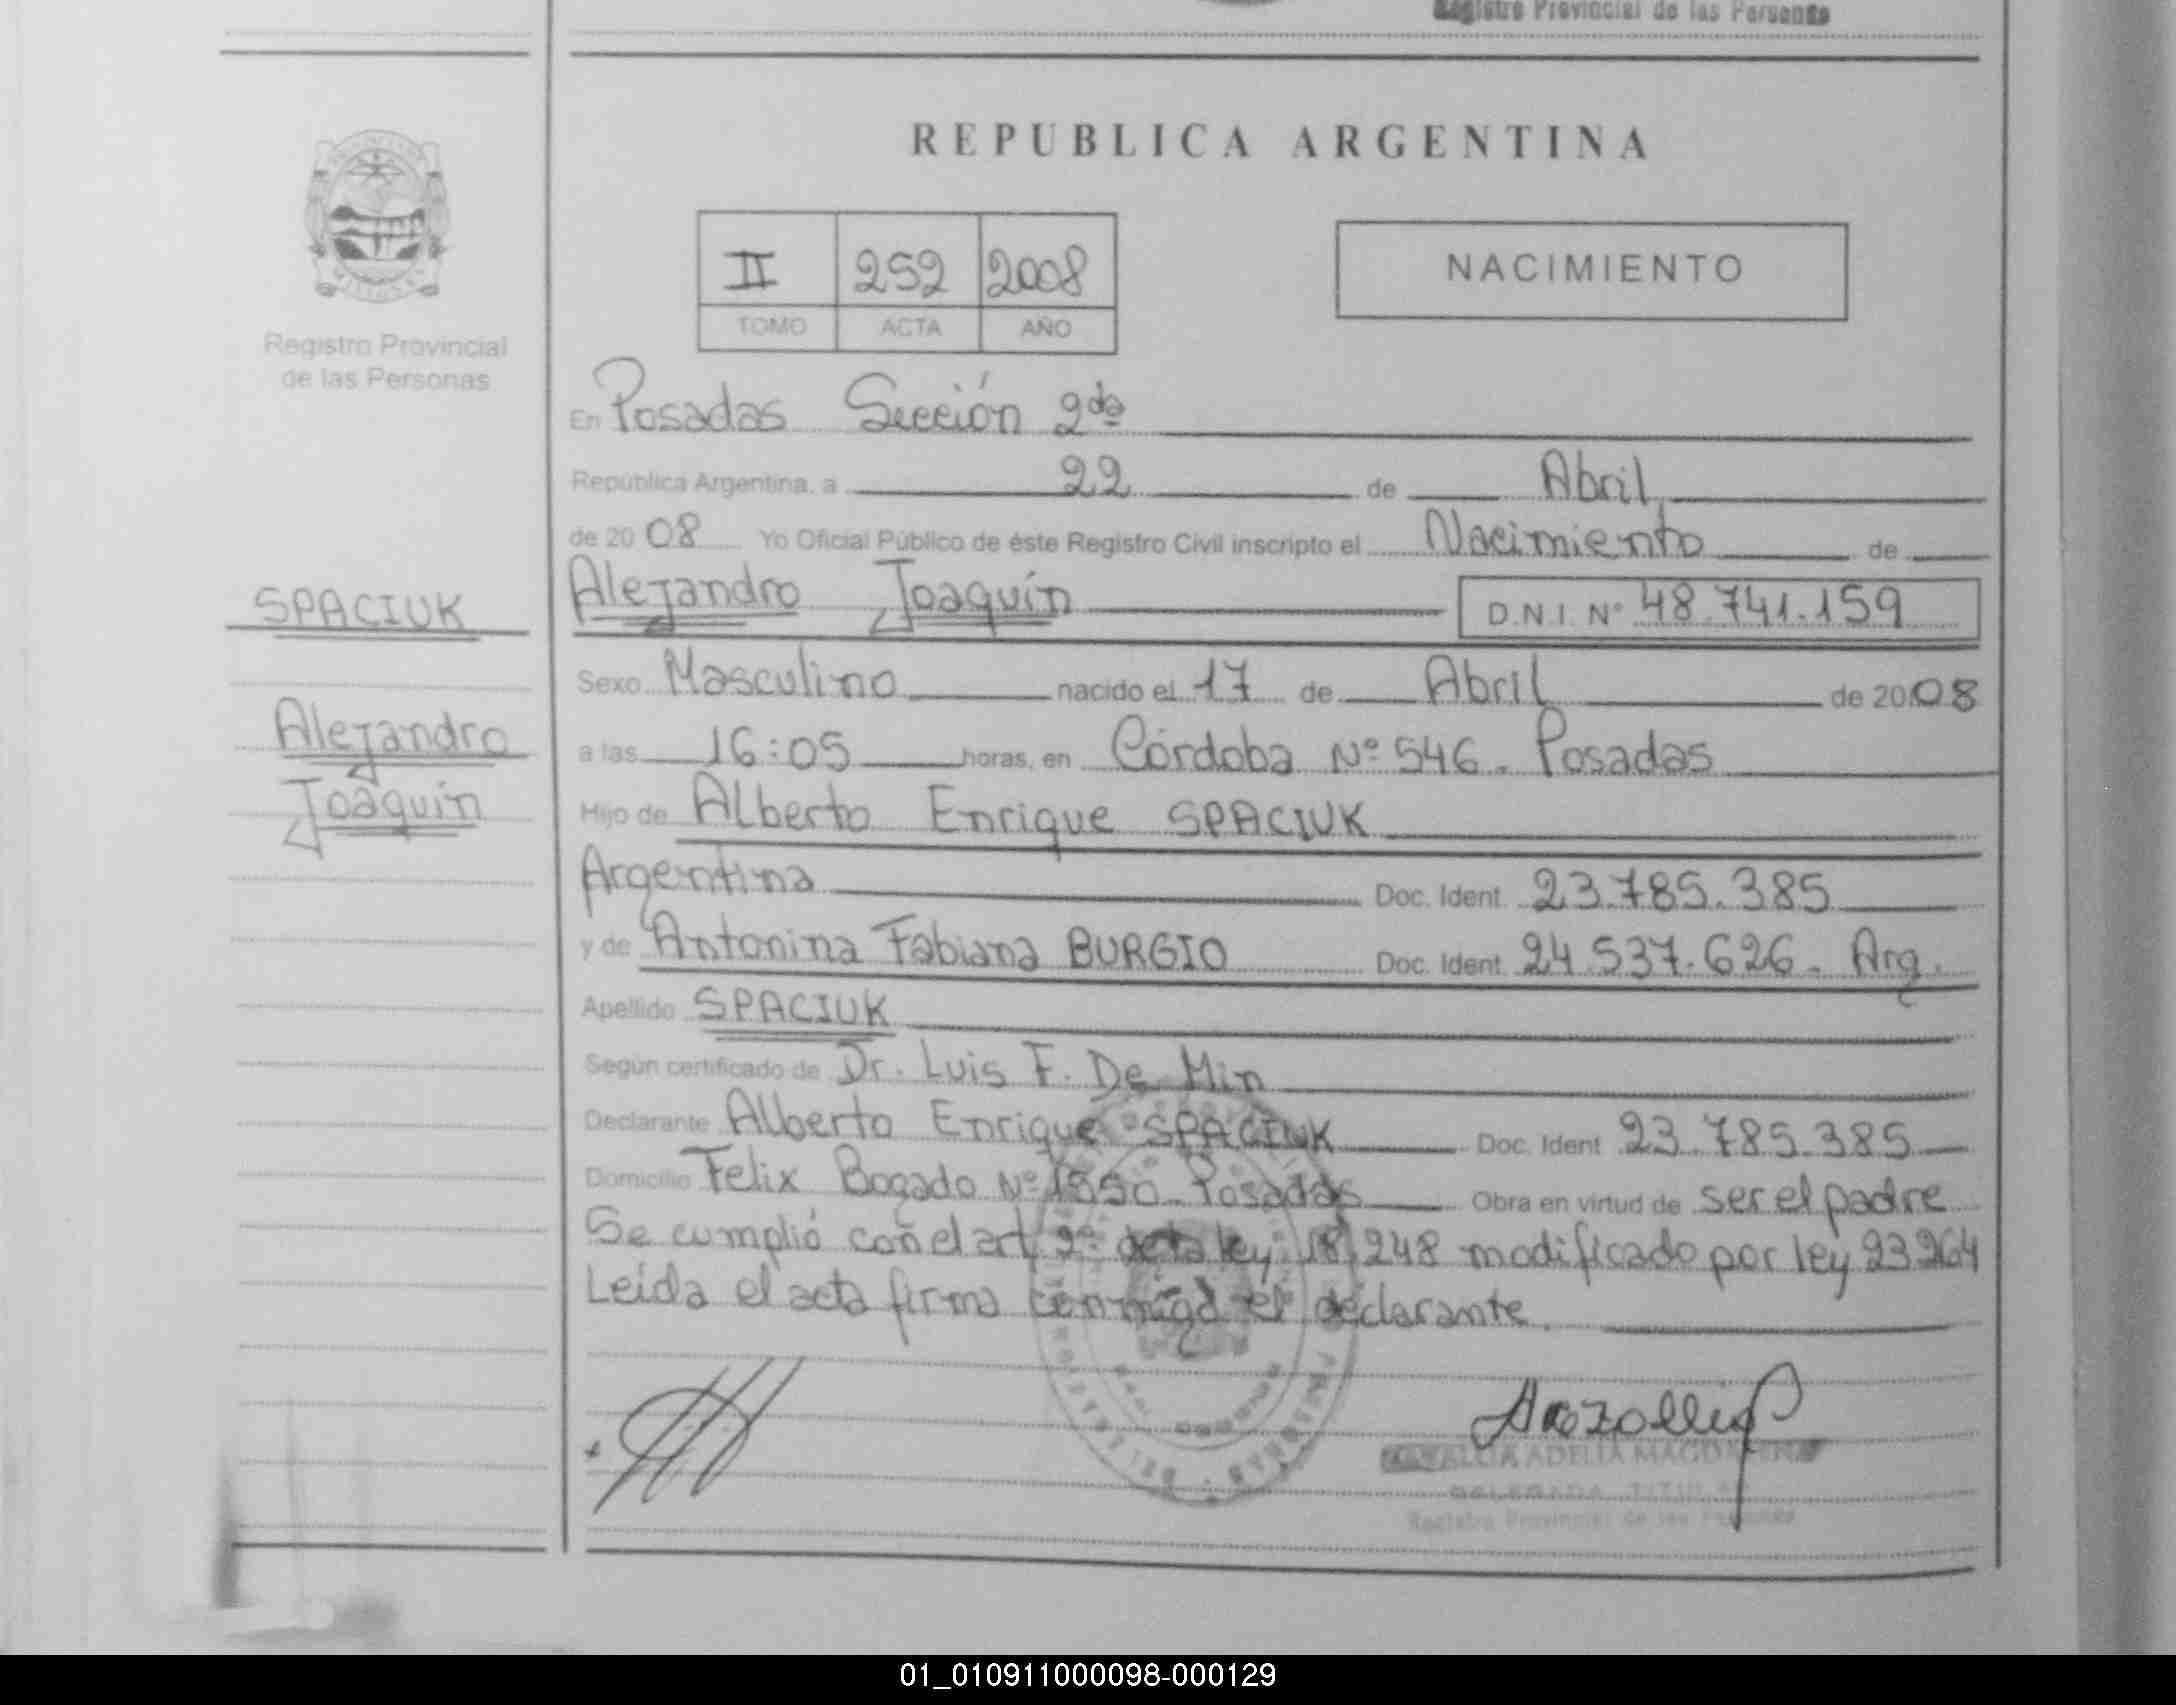 Registro Provincial de las Personas
REPUBLICA ARGENTINA
II 252 2008
TOMO ACTA AÑO
NACIMIENTO
Registro Provincial
de las Personas
En Posadas Sección 2da
República Argentina, a 22 de Abril
de 2008 Yo Oficial Público de éste Registro Civil inscripto el Nacimiento de
SPACIUK
Alejandro Joaquín D.N.I. Nº 48.741.159
Sexo Masculino nacido el 17 de Abril de 2008
Alejandro
Joaquín
a las 16:05 horas, en Córdoba Nº 546. Posadas
Hijo de Alberto Enrique SPACIUK
Argentina Doc. Ident. 23.785.385
y de Antonina Fabiana BURGIO Doc. Ident. 24.537.626. Arg.
Apellido SPACIUK
Según certificado de Dr. Luis F. De Min
Declarante Alberto Enrique SPACIUK Doc. Ident 23.785.385
Domicilio Felix Bogado Nº 1550. Posadas Obra en virtud de ser el padre
Se cumplió con el art. 2º de la ley 18.248 modificado por ley 23.264
Leída el acta firma conmigo el declarante.
ADELIA MAGDALENA
DELEGADA TITULAR
Registro Provincial de las Personas
01_010911000098-000129